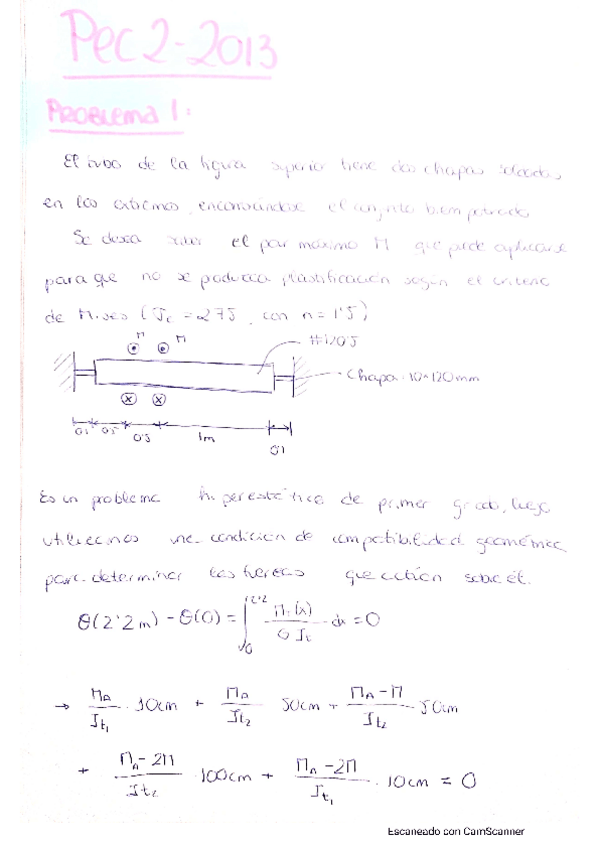 Pec 2-2013
Problema 1:
El tubo de la figura superior tiene dos chapas soldadas
en los extremos, encontrándose el conjunto bien empotrado
Se desea saber el par máximo M que puede aplicarse
para que no se produzca plastificación según el criterio
de Mises ( = 275, con n = 1'5)
M M
Chapa 10*120mm
0'1 0'5 0'5 1m
0'1
Es un problema hiperestático de primer grado, luego
utilizamos una condición de compatibilidad geométrica
para determinar las fuerzas que actúan sobre él.
θ(2'2m) - θ(0) = ∫ dx = 0
→ M_A/J_t1 · 10cm + M_A/J_t2 50cm + M_A-M/J_t2 50cm
+ M_A-2M/J_t2 · 100cm + M_A-2M/J_t1 · 10cm = 0
Escaneado con CamScanner